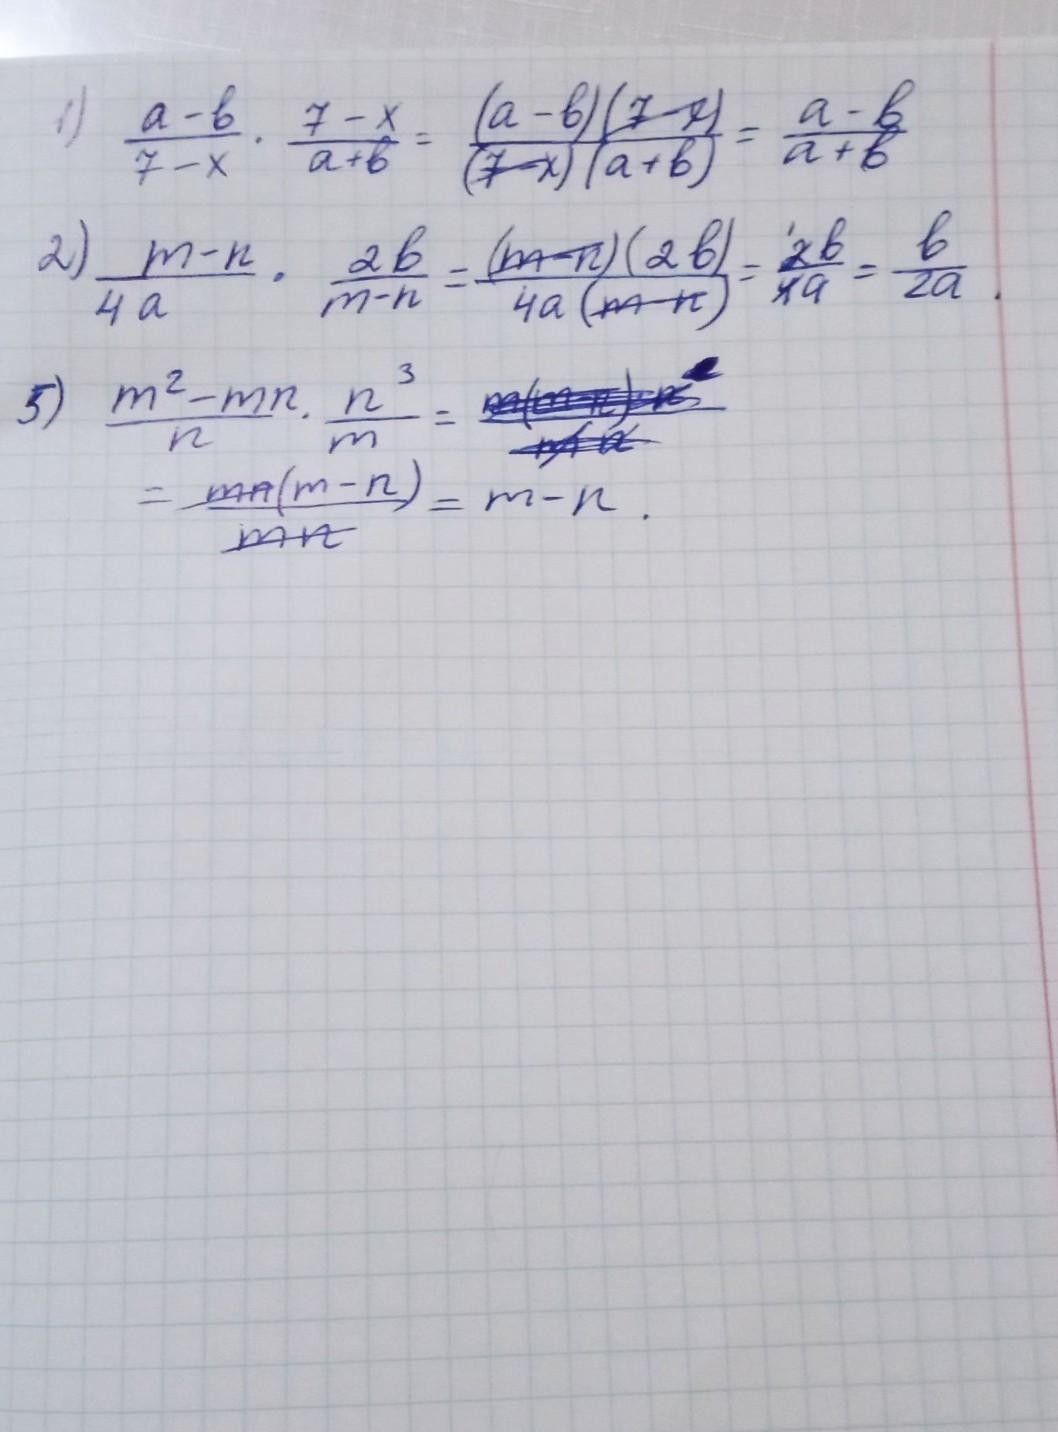 1) (a-b)/(7-x) · (7-x)/(a+b) = ((a-b)(7-x))/((7-x)(a+b)) = (a-b)/(a+b)
2) (m-n)/(4a) · (2b)/(m-n) = ((m-n)(2b))/(4a(m-n)) = (2b)/(4a) = b/(2a).
5) (m²-mn)/n · n³/m =
= (mn(m-n))/(mn) = m-n.